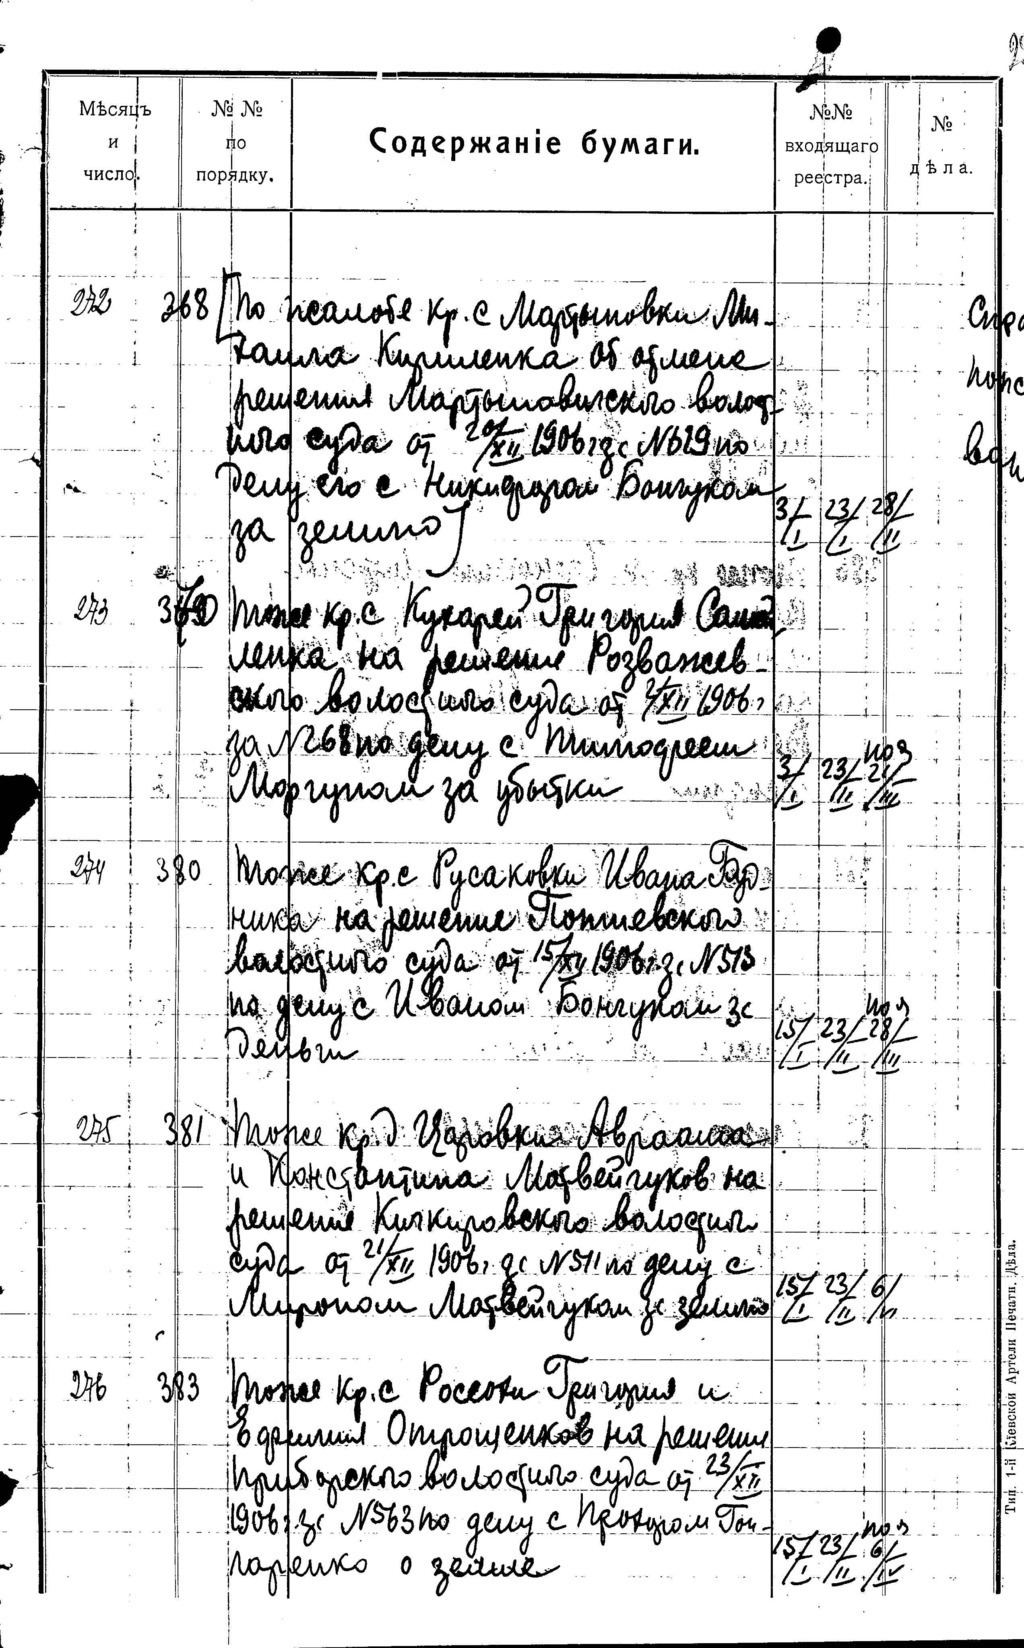 Мѣсяцъ и число.
№ № по порядку.
Содержаніе бумаги.
№№ входящаго реестра.
№ дѣла.
272 368 [По жалобе кр. с Мартыновки Ми-
хаила Кириленка об отмене
решения Мартыновичского волост
ного суда от 20/XII 1906 г за N 629 по
делу его с Никифором Бончуком
за землю]
3/I 23/I 28/II
273 Тоже кр. с Кухарей Григория Самой
ленка на решение Розважев-
ского волостного суда от 21/XII 1906 г
за N 268 по делу с Тимофеем
Моргуном за убытки
3/I 23/II 21/III
274 380 Тоже кр. с Русаковки Ивана Буд-
ника на решение
волостного суда от 15/XII 1906 г за N 513
по делу с Иваном Бончуком за
деньги
15/I 23/II 28/III
275 381 Тоже кр. д Царовки Авраама
и Константина Матвейчуков на
решение Кичкировского волостног
суда от 21/XII 1906 г за N 511 по делу с
Мироном Матвейчуком за землю
15/I 23/II
276 383 Тоже кр. с Россохи Григория и
Ефимия Отрощенков на решение
Приборского волостного суда от 23/XII
1906 г за N 563 по делу с Прохором Гон-
чаренко о земле
15/I 23/II 6/IV
Тип. 1-й Кіевской Артели Печатн. Дѣла.